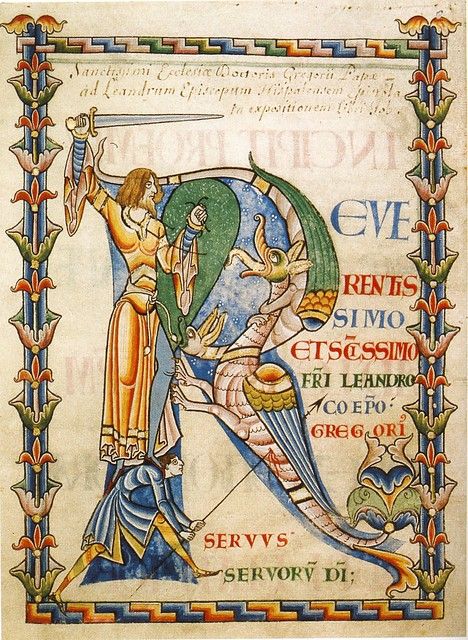 Sanctissimi Eclesiæ Doctoris Gregorii Papæ
ad Leandrum Episcopum Hispalensem
expositionem Libri Iob
REVE
RENTIS
SIMO
ETSC̄ISSIMO
FR̄I LEANDRO
COEP̄O·
GREGORĪ
SERVVS
SERVORV̄ DĪ;